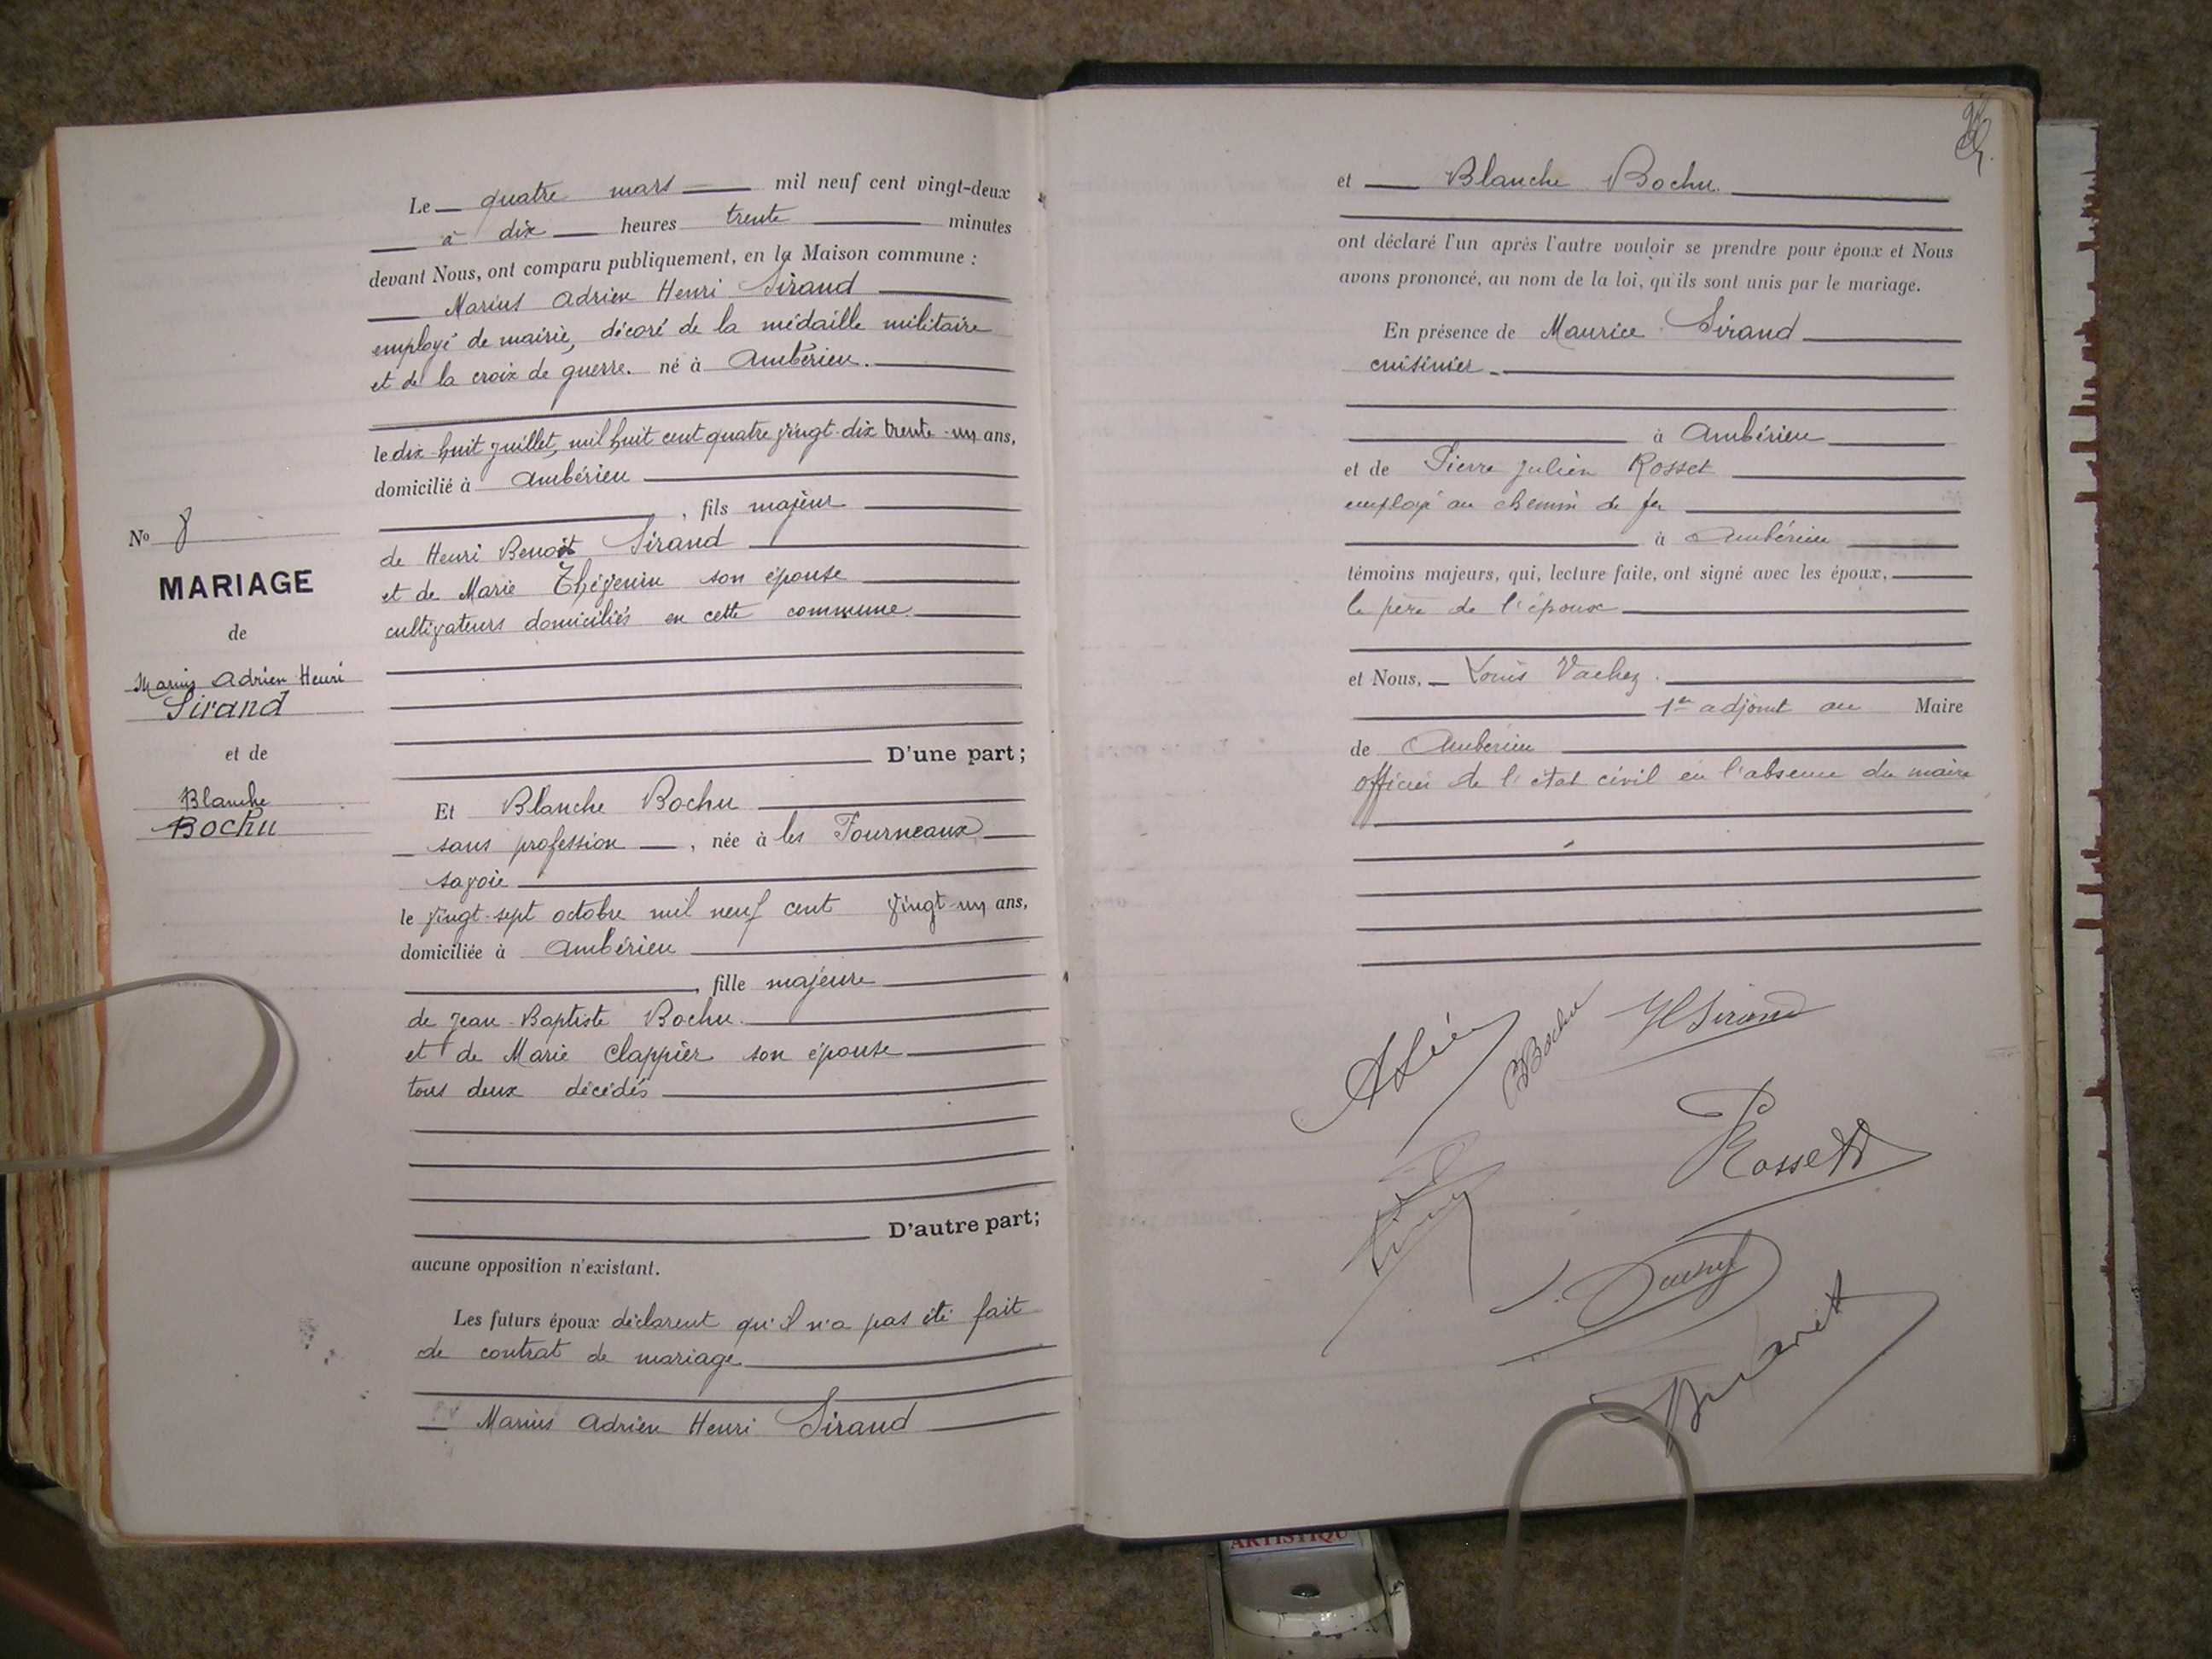 Le quatre mars mil neuf cent vingt-deux
à dix heures trente minutes
devant Nous, ont comparu publiquement, en la Maison commune :
Marius Adrien Henri Sirand
employé de mairie, décoré de la médaille militaire
et de la croix de guerre. né à Ambérieu.
le dix-huit juillet, mil huit cent quatre vingt-dix trente-un ans,
domicilié à Ambérieu
, fils majeur
de Henri Benoît Sirand
et de Marie Thévenin son épouse
cultivateurs domiciliés en cette commune.
D'une part;
Et Blanche Bochu
sans profession, née à les Fourneaux
savoie
le vingt-sept octobre mil neuf cent vingt-un ans,
domiciliée à Ambérieu
, fille majeure
de Jean-Baptiste Bochu.
et de Marie Clappier son épouse
tous deux décédés
D'autre part;
aucune opposition n'existant.
Les futurs époux déclarent qu'il n'a pas été fait
de contrat de mariage.
Marius Adrien Henri Sirand
No 8
MARIAGE
de
Marius Adrien Henri
Sirand
et de
Blanche
Bochu
et Blanche Bochu.
ont déclaré l'un après l'autre vouloir se prendre pour époux et Nous
avons prononcé, au nom de la loi, qu'ils sont unis par le mariage.
En présence de Maurice Sirand
cuisinier
à Ambérieu
et de Pierre Julien Rosset
employé au chemin de fer
à Ambérieu
témoins majeurs, qui, lecture faite, ont signé avec les époux,
le père de l'époux
et Nous, Louis Vachez.
1er adjoint au Maire
de Ambérieu
officier de l'état civil en l'absence du maire
BBochu
HSirand
Rosset
ARTISTIQU